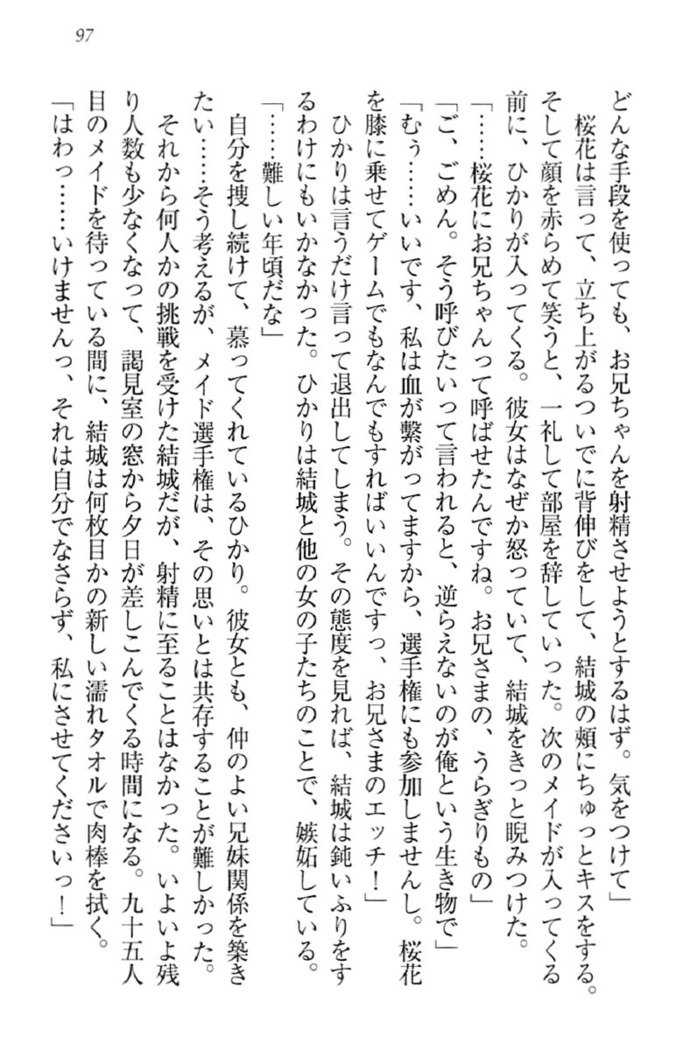 97
どんな手段を使っても、お兄ちゃんを射精させようとするはず。気をつけて」
桜花は言って、立ち上がるついでに背伸びをして、結城の頰にちゅっとキスをする。
そして顔を赤らめて笑うと、一礼して部屋を辞していった。次のメイドが入ってくる
前に、ひかりが入ってくる。彼女はなぜか怒っていて、結城をきっと睨みつけた。
「……桜花にお兄ちゃんって呼ばせたんですね。お兄さまの、うらぎりもの」
「ご、ごめん。そう呼びたいって言われると、逆らえないのが俺という生き物で」
「むぅ……いいです、私は血が繫がってますから、選手権にも参加しませんし。桜花
を膝に乗せてゲームでもなんでもすればいいんですっ、お兄さまのエッチ！」
ひかりは言うだけ言って退出してしまう。その態度を見れば、結城は鈍いふりをす
るわけにもいかなかった。ひかりは結城と他の女の子たちのことで、嫉妬している。
「……難しい年頃だな」
自分を捜し続けて、慕ってくれているひかり。彼女とも、仲のよい兄妹関係を築き
たい……そう考えるが、メイド選手権は、その思いとは共存することが難しかった。
それから何人かの挑戦を受けた結城だが、射精に至ることはなかった。いよいよ残
り人数も少なくなって、謁見室の窓から夕日が差しこんでくる時間になる。九十五人
目のメイドを待っている間に、結城は何枚目かの新しい濡れタオルで肉棒を拭く。
「はわっ……いけませんっ、それは自分でなさらず、私にさせてくださいっ！」